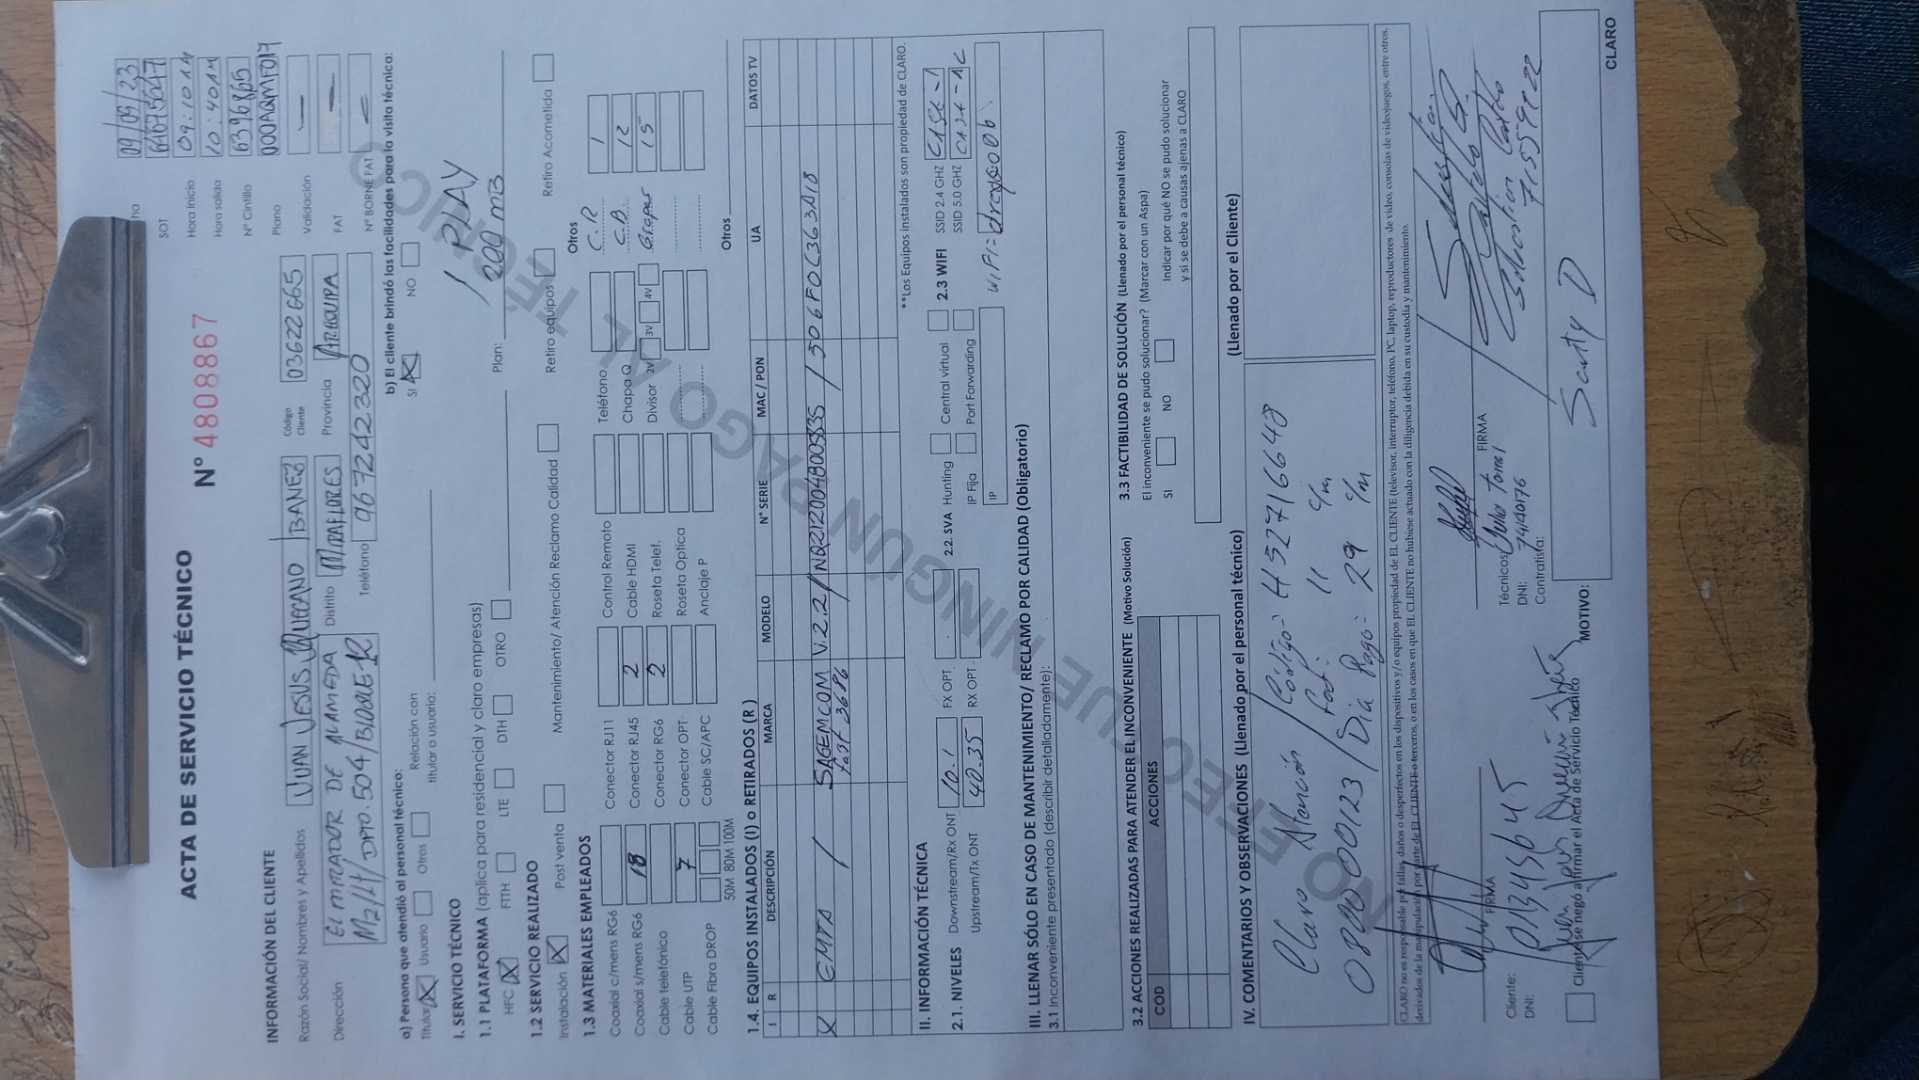 ACTA DE SERVICIO TÉCNICO
N° 4808867
09/09/23
SOT 66675047
Hora Inicio 09:10AM
Hora salida 10:40AM
N° Cintillo 6396865
Plano
Validación —
FAT —
N° BORNE FAT —
INFORMACIÓN DEL CLIENTE
Razón Social/ Nombres y Apellidos JUAN JESUS BAÑEZ
Código Cliente 03622665
Dirección EL MIRADOR DE ALAMEDA
Mz/Lt/ DPTO. 504/BLOQUE R
Distrito MIRAFLORES
Provincia AREQUIPA
Teléfono 967242320
a) Persona que atendió al personal técnico:
Titular X Usuario Otros
Relación con titular o usuario:
b) El cliente brindó las facilidades para la visita técnica:
SI X NO
I. SERVICIO TÉCNICO
1.1 PLATAFORMA (aplica para residencial y claro empresas)
HFC X FTTH LTE DTH OTRO
Plan: 1 PLAY
200 MB
1.2 SERVICIO REALIZADO
Instalación X Post venta Mantenimiento/ Atención Reclamo Calidad Retiro equipos Retiro Acometida
1.3 MATERIALES EMPLEADOS
Otros
Coaxial c/mens RG6 Conector RJ11 Control Remoto Teléfono C.R 1
Coaxial s/mens RG6 18 Conector RJ45 2 Cable HDMI Chapa Q C.B 12
Cable telefónico Conector RG6 2 Roseta Telef. Divisor 2V 3V 4V Grapas 15
Cable UTP 7 Conector OPT Roseta Optica
Cable Fibra DROP Cable SC/APC Anclaje P
50M 80M 100M
1.4. EQUIPOS INSTALADOS (I) o RETIRADOS (R )
Otros
I R DESCRIPCIÓN MARCA MODELO N° SERIE MAC / PON UA DATOS TV
X EMTA / SAGEMCOM V.2.2 / NQ212004800535 / 506F0C363A18
fast 3686
**Los Equipos instalados son propiedad de CLARO.
II. INFORMACIÓN TÉCNICA
2.1. NIVELES Downstream/Rx ONT 10.1 FX OPT.
Upstream/Tx ONT 40.35 RX OPT.
2.2. SVA Hunting Central virtual
IP Fija Port Forwarding
IP
2.3 WIFI SSID 2.4 GHZ
SSID 5.0 GHZ
WiFi=
III. LLENAR SÓLO EN CASO DE MANTENIMIENTO/ RECLAMO POR CALIDAD (Obligatorio)
3.1 Inconveniente presentado (describir detalladamente):
3.2 ACCIONES REALIZADAS PARA ATENDER EL INCONVENIENTE (Motivo Solución)
COD ACCIONES
3.3 FACTIBILIDAD DE SOLUCIÓN (Llenado por el personal técnico)
El inconveniente se pudo solucionar? (Marcar con un Aspa)
SI NO
Indicar por qué NO se pudo solucionar
y si se debe a causas ajenas a CLARO
IV. COMENTARIOS Y OBSERVACIONES (Llenado por el personal técnico)
(Llenado por el Cliente)
Claro Atención / Código: H1527166648
Fact: 11 c/m
080000123 / Dia Pago: 29 c/m
CLARO no es responsable por fallas, daños o desperfectos en los dispositivos y/o equipos propiedad de EL CLIENTE (televisor, interruptor, teléfono, PC, laptop, reproductores de video, consolas de videojuegos, entre otros,
derivados de la manipulación por parte de EL CLIENTE o terceros, o en los casos en que EL CLIENTE no hubiese actuado con la diligencia debida en su custodia y mantenimiento.
FIRMA
Cliente:
DNI:
FIRMA
Técnicos:
DNI: 74120176
Contratista:
71555922
Cliente se negó a firmar el Acta de Servicio Técnico
MOTIVO:
CLARO
NO EFECTUE NINGUN PAGO AL TÉCNICO